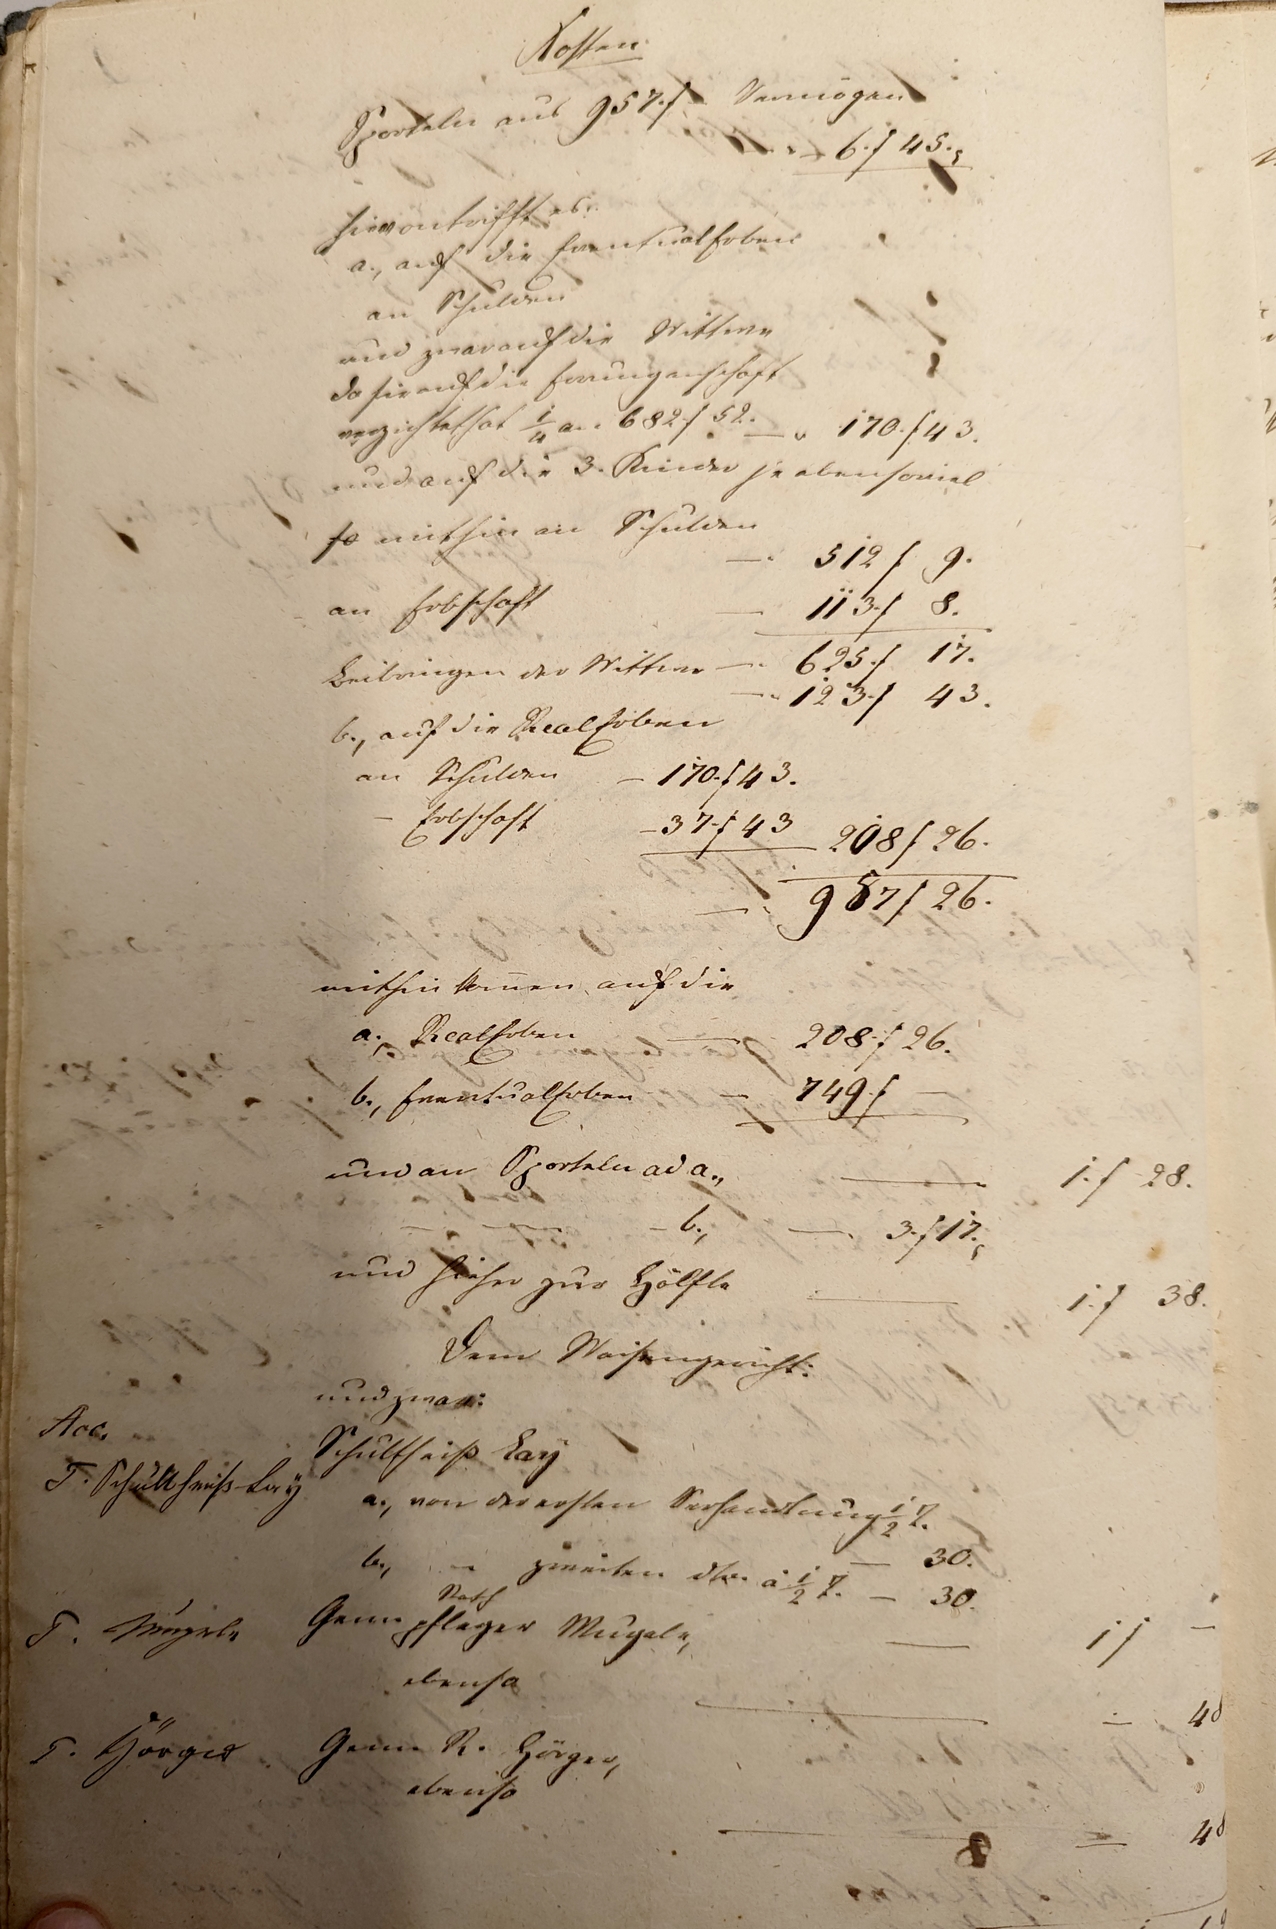 Kosten
Sporteln aus 957.f Vermögen
6.f 45.
hievon trifft es:
a., auf die Eventual Erben
an Schulden
und zwar auf die Wittwe
da sie auf die Errungenschaft
verzichtet hat 1/4 a. 682.f 52. — 170.f 43.
und auf die 3. Kinder je ebensoviel
so mithin an Schulden
— 512 f 9.
an Erbschaft — 113.f 8.
625.f 17.
Beibringen der Wittwe — 123.f 43.
b., auf die Real Erben
an Schulden — 170.f 43.
- Erbschaft — 37.f 43 208 f 26.
— 957 f 26.
mithin kom̅en auf die
a., Real Erben — 208.f 26.
b., Eventual Erben — 749.f —
und an Sporteln ad a., — 1.f 28.
— — — b., — 3.f 17.
und hieher zur Hälfte — 1.f 38.
Dem Waisengericht:
und zwar:
Acc.
Schultheiß Lay
T. Schultheiß Lay
a., von der ersten Verhandlung 1/2 T.
— 30.
b., — zweiten dto. à 1/2 T. — 30.
1 f —
Rath
T. Mugele Gem pfleger Mugele,
ebenso
— 48
T. Hörger Gem R. Hörger,
ebenso
— 48